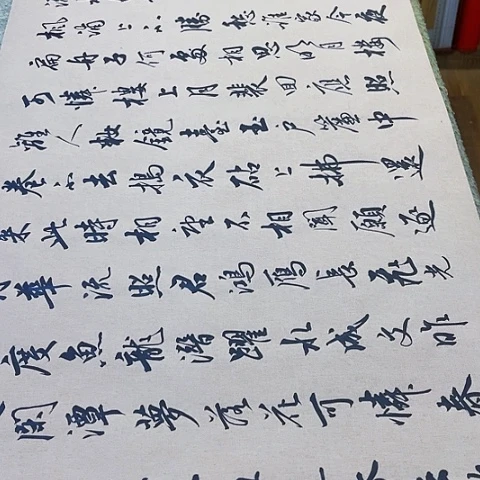 楓浦上不勝愁誰家今夜
扁舟子何處相思明月樓
可憐樓上月裴回應照
離人妝鏡臺玉戶簾中
卷不去搗衣砧上拂還
來此時相望不相聞願逐
月華流照君鴻雁長飛光
度魚龍潛躍水成文昨
閑潭夢落花可憐春